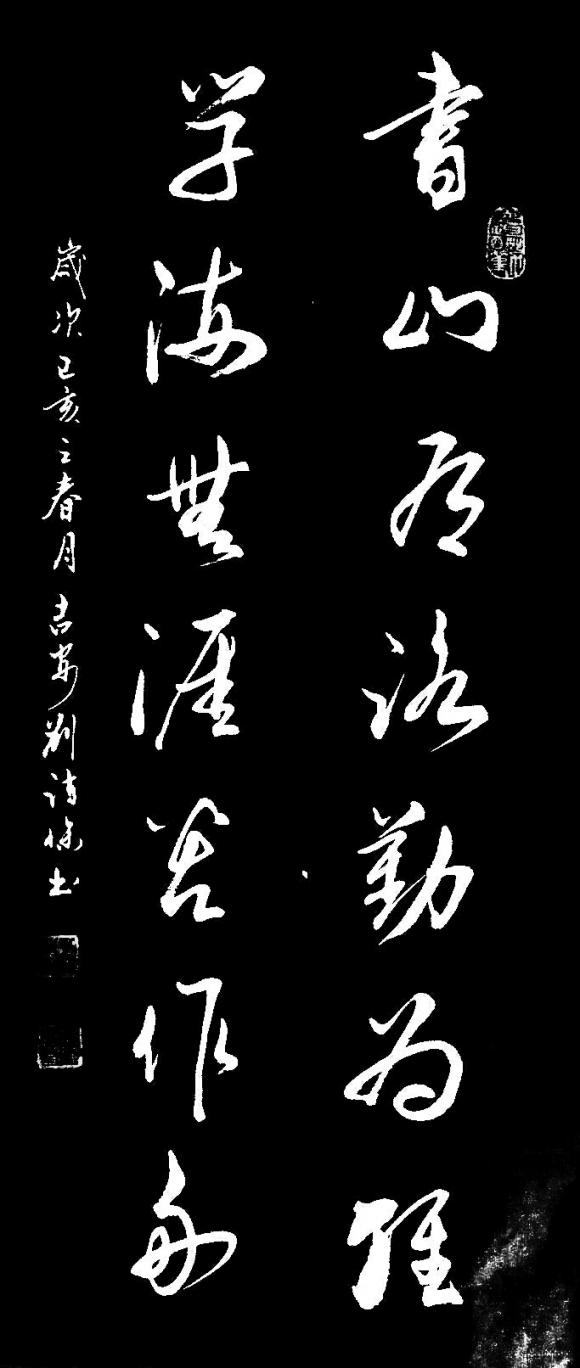 書山有路勤为徑
学海無涯苦作舟
歲次己亥之春月吉安劉诗书